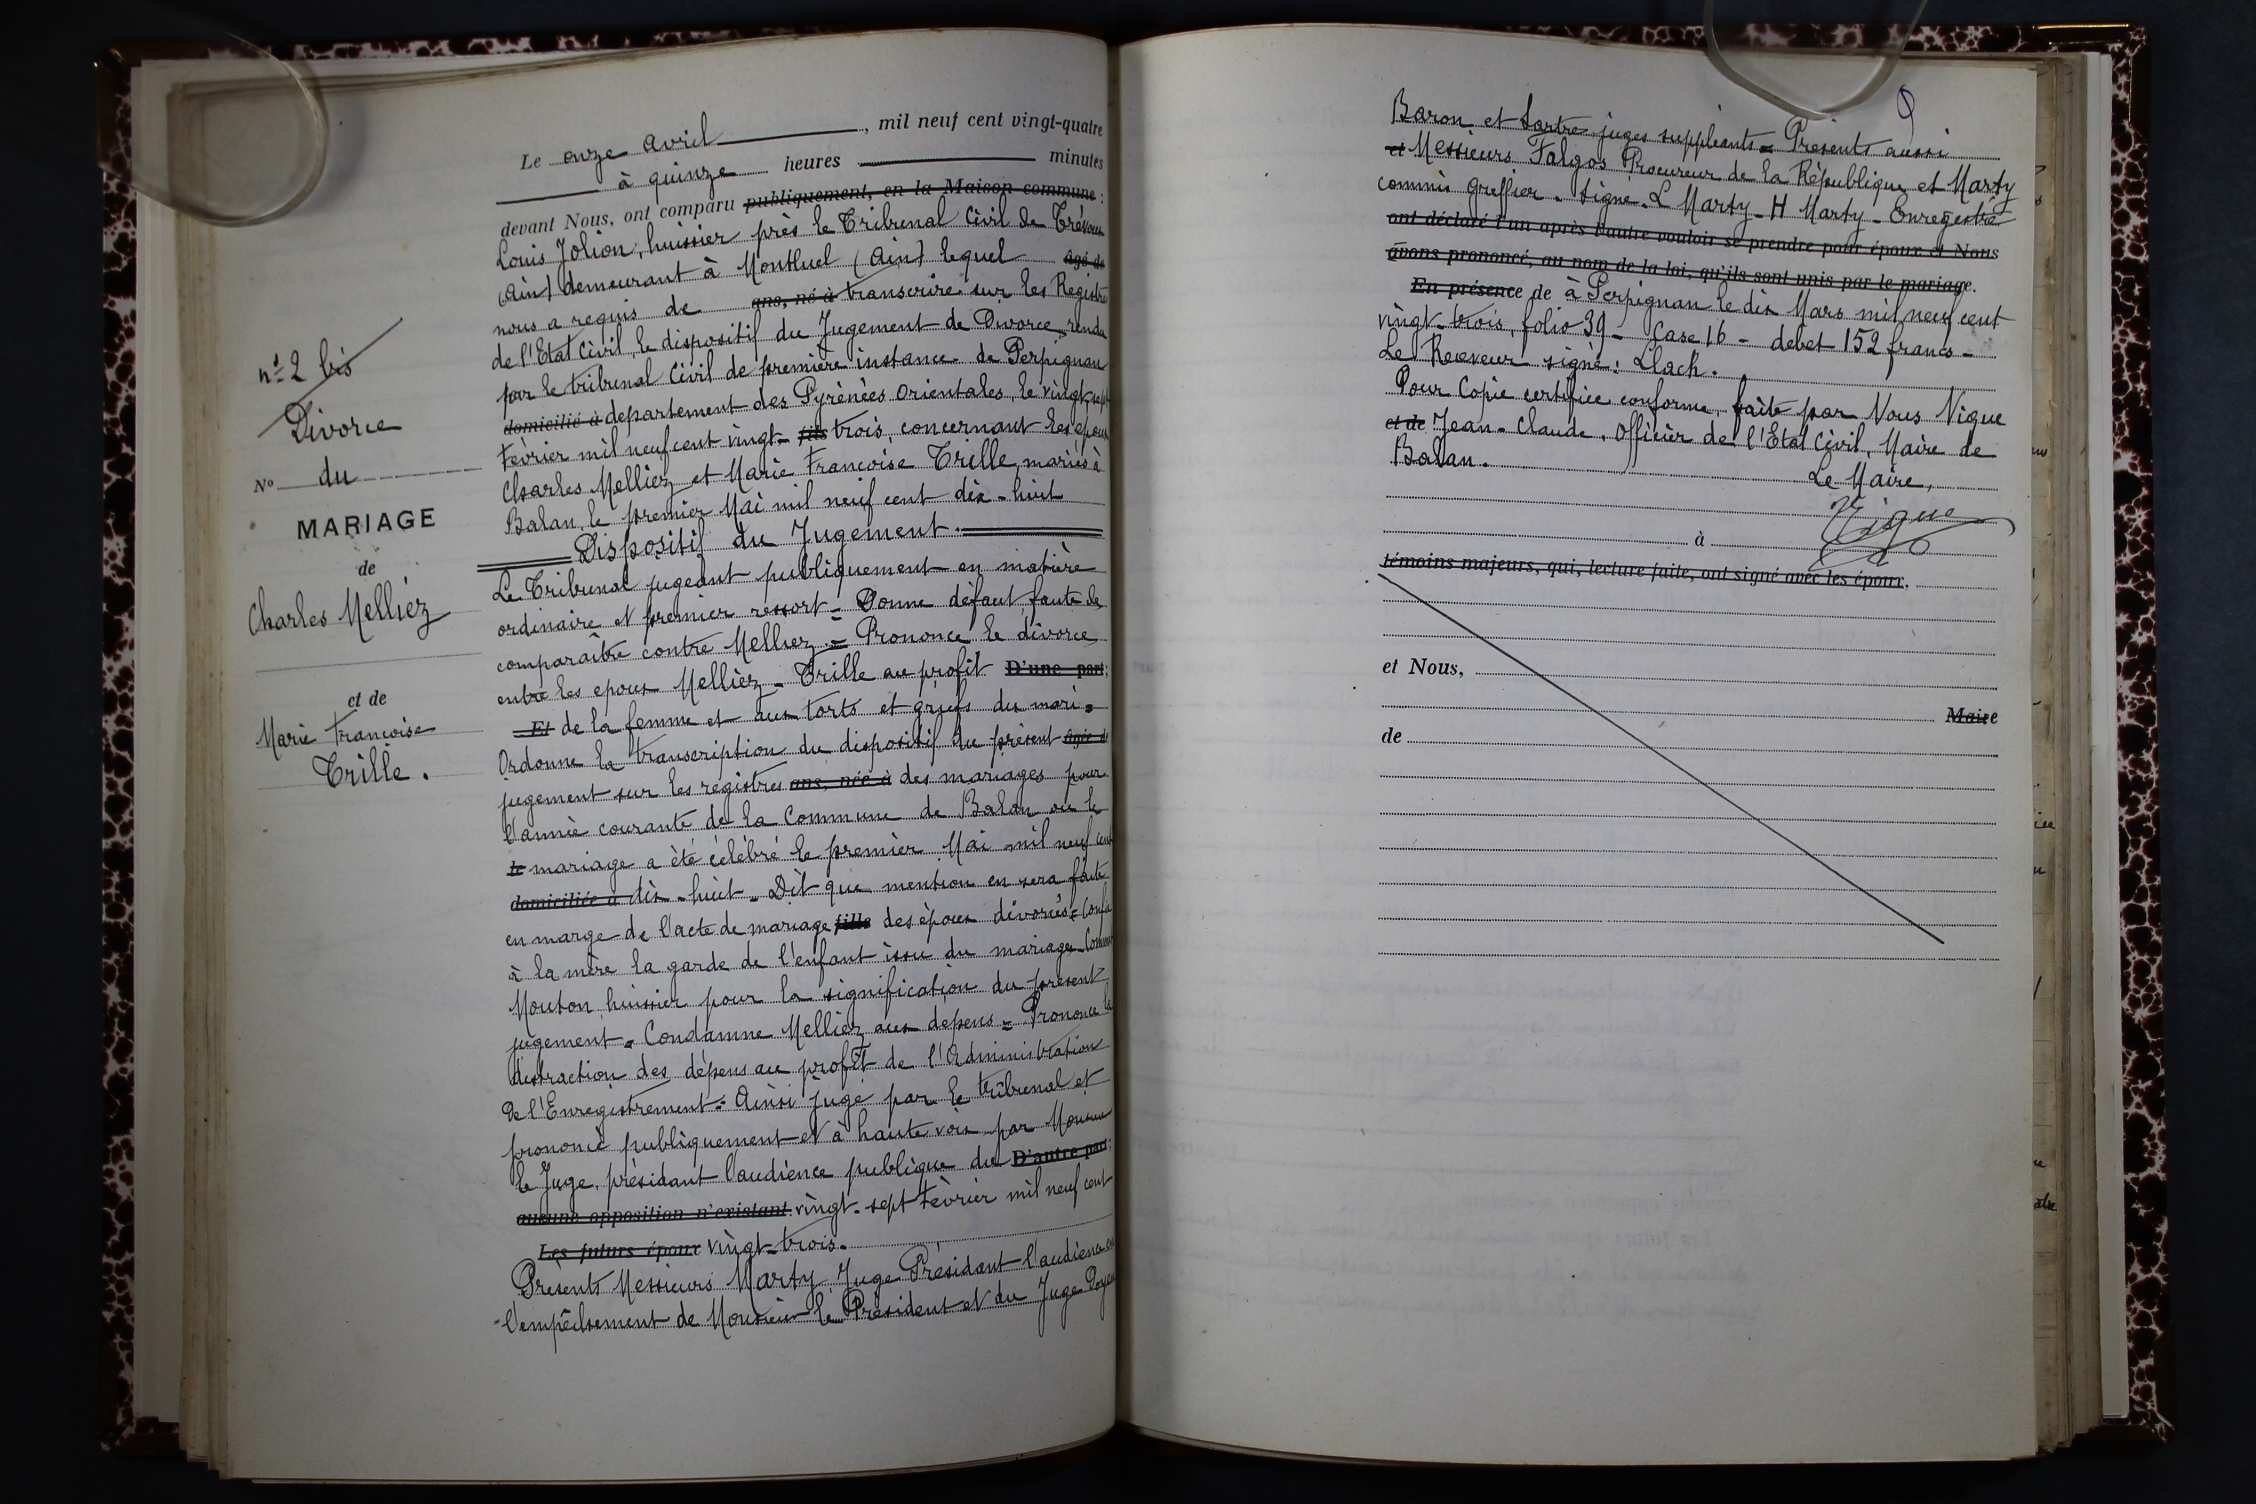 Le onze avril, mil neuf cent vingt-quatre
à quinze heures minutes
devant Nous, ont comparu publiquement, en la Maison commune :
Louis Jolion, huissier près le Tribunal Civil de Trévoux
(Ain) demeurant à Montluel (Ain) lequel âgé de
nous a requis de ans, né à transcrire sur les Registres
de l'Etat Civil, le dispositif du Jugement de Divorce rendu
par le tribunal Civil de première instance de Perpignan
domicilié à département des Pyrénées Orientales, le vingt-sept
Février mil neuf cent vingt- fils trois, concernant les époux
Charles Melliez et Marie Françoise Trille, mariés à
Balan, le premier Mai mil neuf cent dix-huit
Dispositif du Jugement.
Le Tribunal jugeant publiquement en matière
ordinaire et premier ressort = Donne défaut, faute de
comparaître contre Melliez. = Prononce le divorce
entre les epoux Melliez - Trille au profit D'une part;
Et de la femme et aux torts et griefs du mari =
Ordonne la transcription du dispositif du présent âgée de
jugement sur les registres ans, née à des mariages pour
l'année courante de la Commune de Balan où le
le mariage a été célébré le premier Mai mil neuf cent
domiciliée à dix-huit - Dit que mention en sera faite
en marge de l'acte de mariage fille des époux divorcés = Confie
à la mère la garde de l'enfant issu du mariage - Commet
Mouton huissier pour la signification du présent
jugement = Condamne Melliez aux depens = Prononce la
distraction des dépens au profit de l'Administration
de l'Enregistrement = Ainsi jugé par le tribunal et
prononcé publiquement et à haute voix par Monsieur
le Juge, présidant l'audience publique du D'autre part;
aucune opposition n'existant. vingt-sept Février mil neuf cent
Les futurs époux vingt-trois.
Présents Messieurs Marty Juge Président l'audience en
l'empêchement de Monsieur le Président et du Juge Doyen
n° 2 bis
Divorce
N° du
MARIAGE
de
Charles Melliez
et de
Marie Françoise
Trille.
Baron et Sartre juges suppléants = Présents aussi
et Messieurs Falgos Procureur de la République et Marty
commis Greffier - Signé - L Marty - H Marty - Enregistré
ont déclaré l'un après l'autre vouloir se prendre pour époux et Nous
avons prononcé, au nom de la loi, qu'ils sont unis par le mariage.
En présence de à Perpignan le dix Mars mil neuf cent
vingt-trois, folio 39 - Case 16 - debet 152 francs -
Le Receveur signé : Llach.
Pour Copie certifiée conforme, faite par Nous Nigue
et de Jean-Claude, Officier de l'Etat Civil, Maire de
Balan.
Le Maire,
Nigue
à
témoins majeurs, qui, lecture faite, ont signé avec les époux,
et Nous,
Maire
de